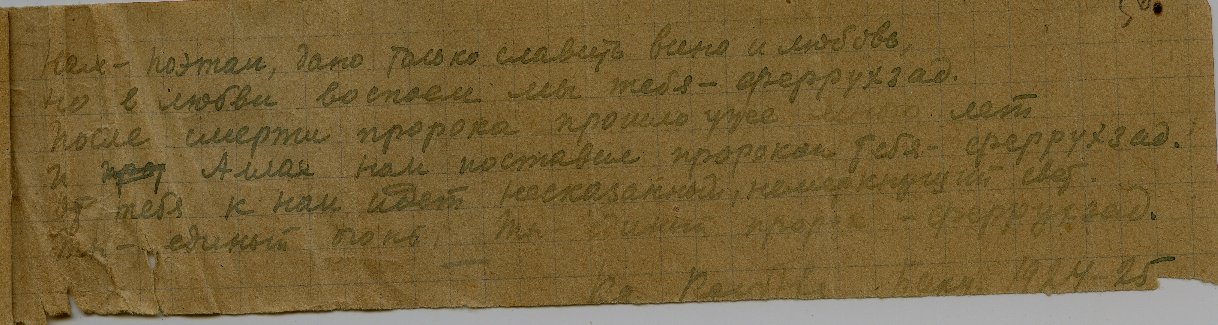 Нам - поэтам, дано только славить вино и любовь,
но в любви воспоем мы тебя - Феррухзад.
После смерти пророка прошло уже много лет
и Аллах нам поставил пророком тебя - Феррухзад.!
От тебя к нам идет несказанный, немеркнущий свет.
Ты - единый огонь. Ты единый пророк - Феррухзад.
Баку 1924 25